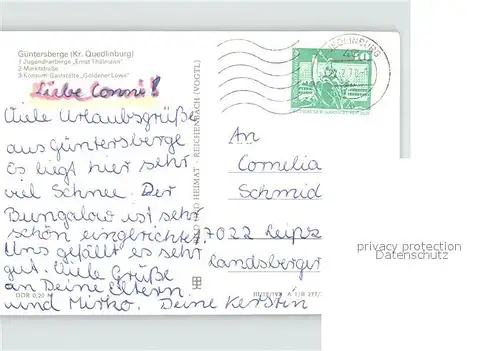 Güntersberge (Kr. Quedlinburg)
1 Jugendherberge „Ernst Thälmann"
2 Marktstraße
3 Konsum-Gaststätte „Goldener Löwe"
Liebe Conni!
Viele Urlaubsgrüße
aus Güntersberge
Es liegt hier sehr
viel Schnee. Der
Bungalow ist sehr
schön eingerichtet.
Uns gefällt es sehr
gut. Viele Grüße
an Deine Eltern
und Mirko. Deine Kerstin
DDR 0,20 M
BILD UND HEIMAT · REICHENBACH (VOGTL)
QUEDLINBURG
50
An
Cornelia
Schmid
7022 Leipz
Landsberger
III/18/197 A 1/B 277/
privacy protection
Datenschutz